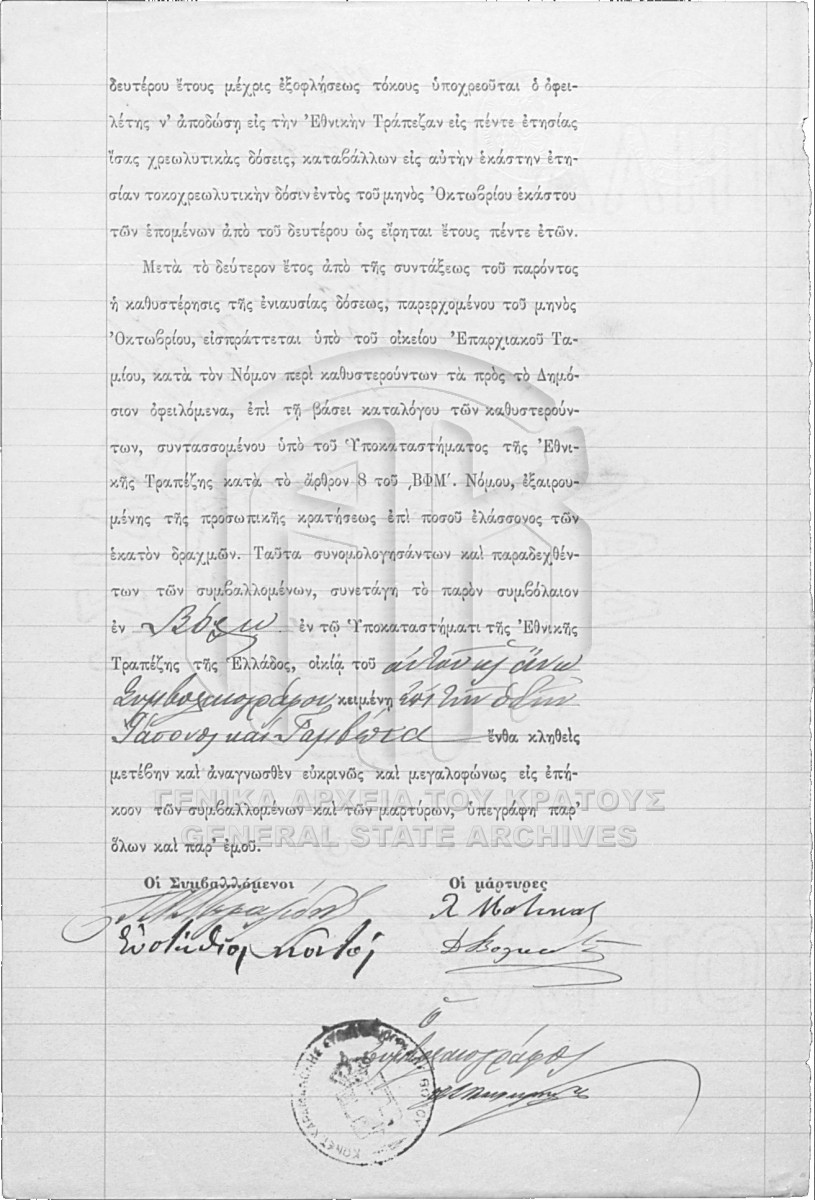 δευτέρου ἔτους μέχρις ἐξοφλήσεως τόκους ὑποχρεοῦται ὁ ὀφει-
λέτης ν' ἀποδώσῃ εἰς τὴν Ἐθνικὴν Τράπεζαν εἰς πέντε ἐτησίας
ἴσας χρεωλυτικὰς δόσεις, καταβάλλων εἰς αὐτὴν ἑκάστην ἐτη-
σίαν τοκοχρεωλυτικὴν δόσιν ἐντὸς τοῦ μηνὸς Ὀκτωβρίου ἑκάστου
τῶν ἑπομένων ἀπὸ τοῦ δευτέρου ὡς εἴρηται ἔτους πέντε ἐτῶν.
Μετὰ τὸ δεύτερον ἔτος ἀπὸ τῆς συντάξεως τοῦ παρόντος
ἡ καθυστέρησις τῆς ἐνιαυσίας δόσεως, παρερχομένου τοῦ μηνὸς
Ὀκτωβρίου, εἰσπράττεται ὑπὸ τοῦ οἰκείου Ἐπαρχιακοῦ Τα-
μίου, κατὰ τὸν Νόμον περὶ καθυστερούντων τὰ πρὸς τὸ Δημό-
σιον ὀφειλόμενα, ἐπὶ τῇ βάσει καταλόγου τῶν καθυστερούν-
των, συντασσομένου ὑπὸ τοῦ Ὑποκαταστήματος τῆς Ἐθνι-
κῆς Τραπέζης κατὰ τὸ ἄρθρον 8 τοῦ ͵ΒΦΜ'. Νόμου, ἐξαιρου-
μένης τῆς προσωπικῆς κρατήσεως ἐπὶ ποσοῦ ἐλάσσονος τῶν
ἑκατὸν δραχμῶν. Ταῦτα συνομολογησάντων καὶ παραδεχθέν-
των τῶν συμβαλλομένων, συνετάγη τὸ παρὸν συμβόλαιον
ἐν Βόλῳ ἐν τῷ Ὑποκαταστήματι τῆς Ἐθνικῆς
Τραπέζης τῆς Ἑλλάδος, οἰκίᾳ τοῦ
Συμβολαιογράφου κειμένῃ ἐπὶ τὴν ὁδὸν
Ἰάσονος καὶ Γαμβέτα ἔνθα κληθεὶς
μετέβην καὶ ἀναγνωσθὲν εὐκρινῶς καὶ μεγαλοφώνως εἰς ἐπή-
κοον τῶν συμβαλλομένων καὶ τῶν μαρτύρων, ὑπεγράφη παρ'
ὅλων καὶ παρ' ἐμοῦ.
ΓΕΝΙΚΑ ΑΡΧΕΙΑ ΤΟΥ ΚΡΑΤΟΥΣ
GENERAL STATE ARCHIVES
Οἱ Συμβαλλόμενοι
Οἱ μάρτυρες
Εὐστάθιος
Ὁ
Συμβολαιογράφος